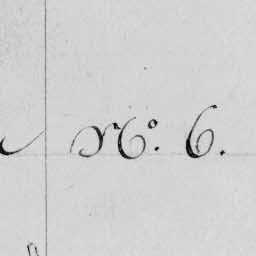 No. 6.